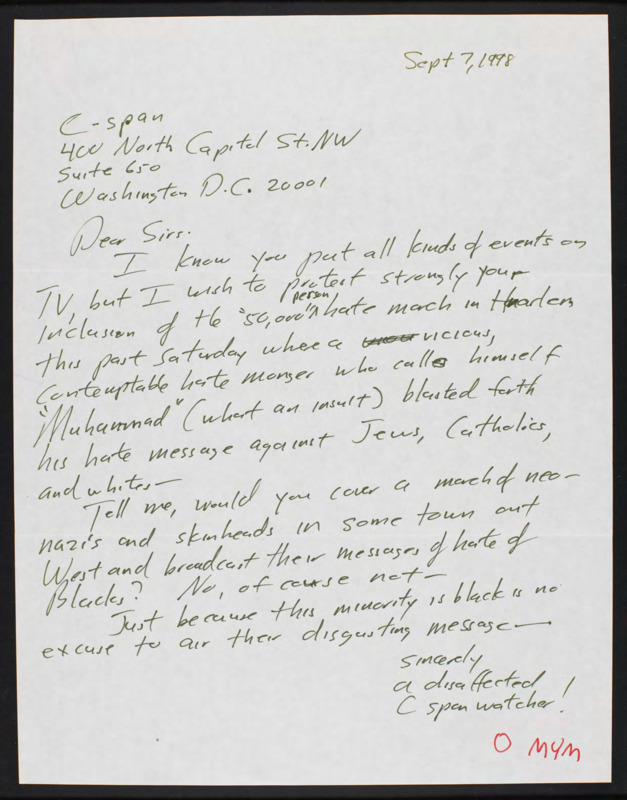 Sept 7, 1998
C-span
400 North Capitol St. NW
Suite 650
Washington D.C. 20001
Dear Sirs.
I know you put all kinds of events on
TV, but I wish to protest strongly your
inclusion of the "50,000" person hate march in Harlem
this past Saturday where a vicious,
contemptable hate monger who calls himself
"Muhammad" (what an insult) blasted forth
his hate message against Jews, Catholics,
and whites—
Tell me, would you cover a march of neo-
nazi's and skinheads in some town out
West and broadcast their messages of hate of
Blacks? No, of course not—
Just because this minority is black is no
excuse to air their disgusting message—
sincerely
a disaffected
C span watcher!
O MYM